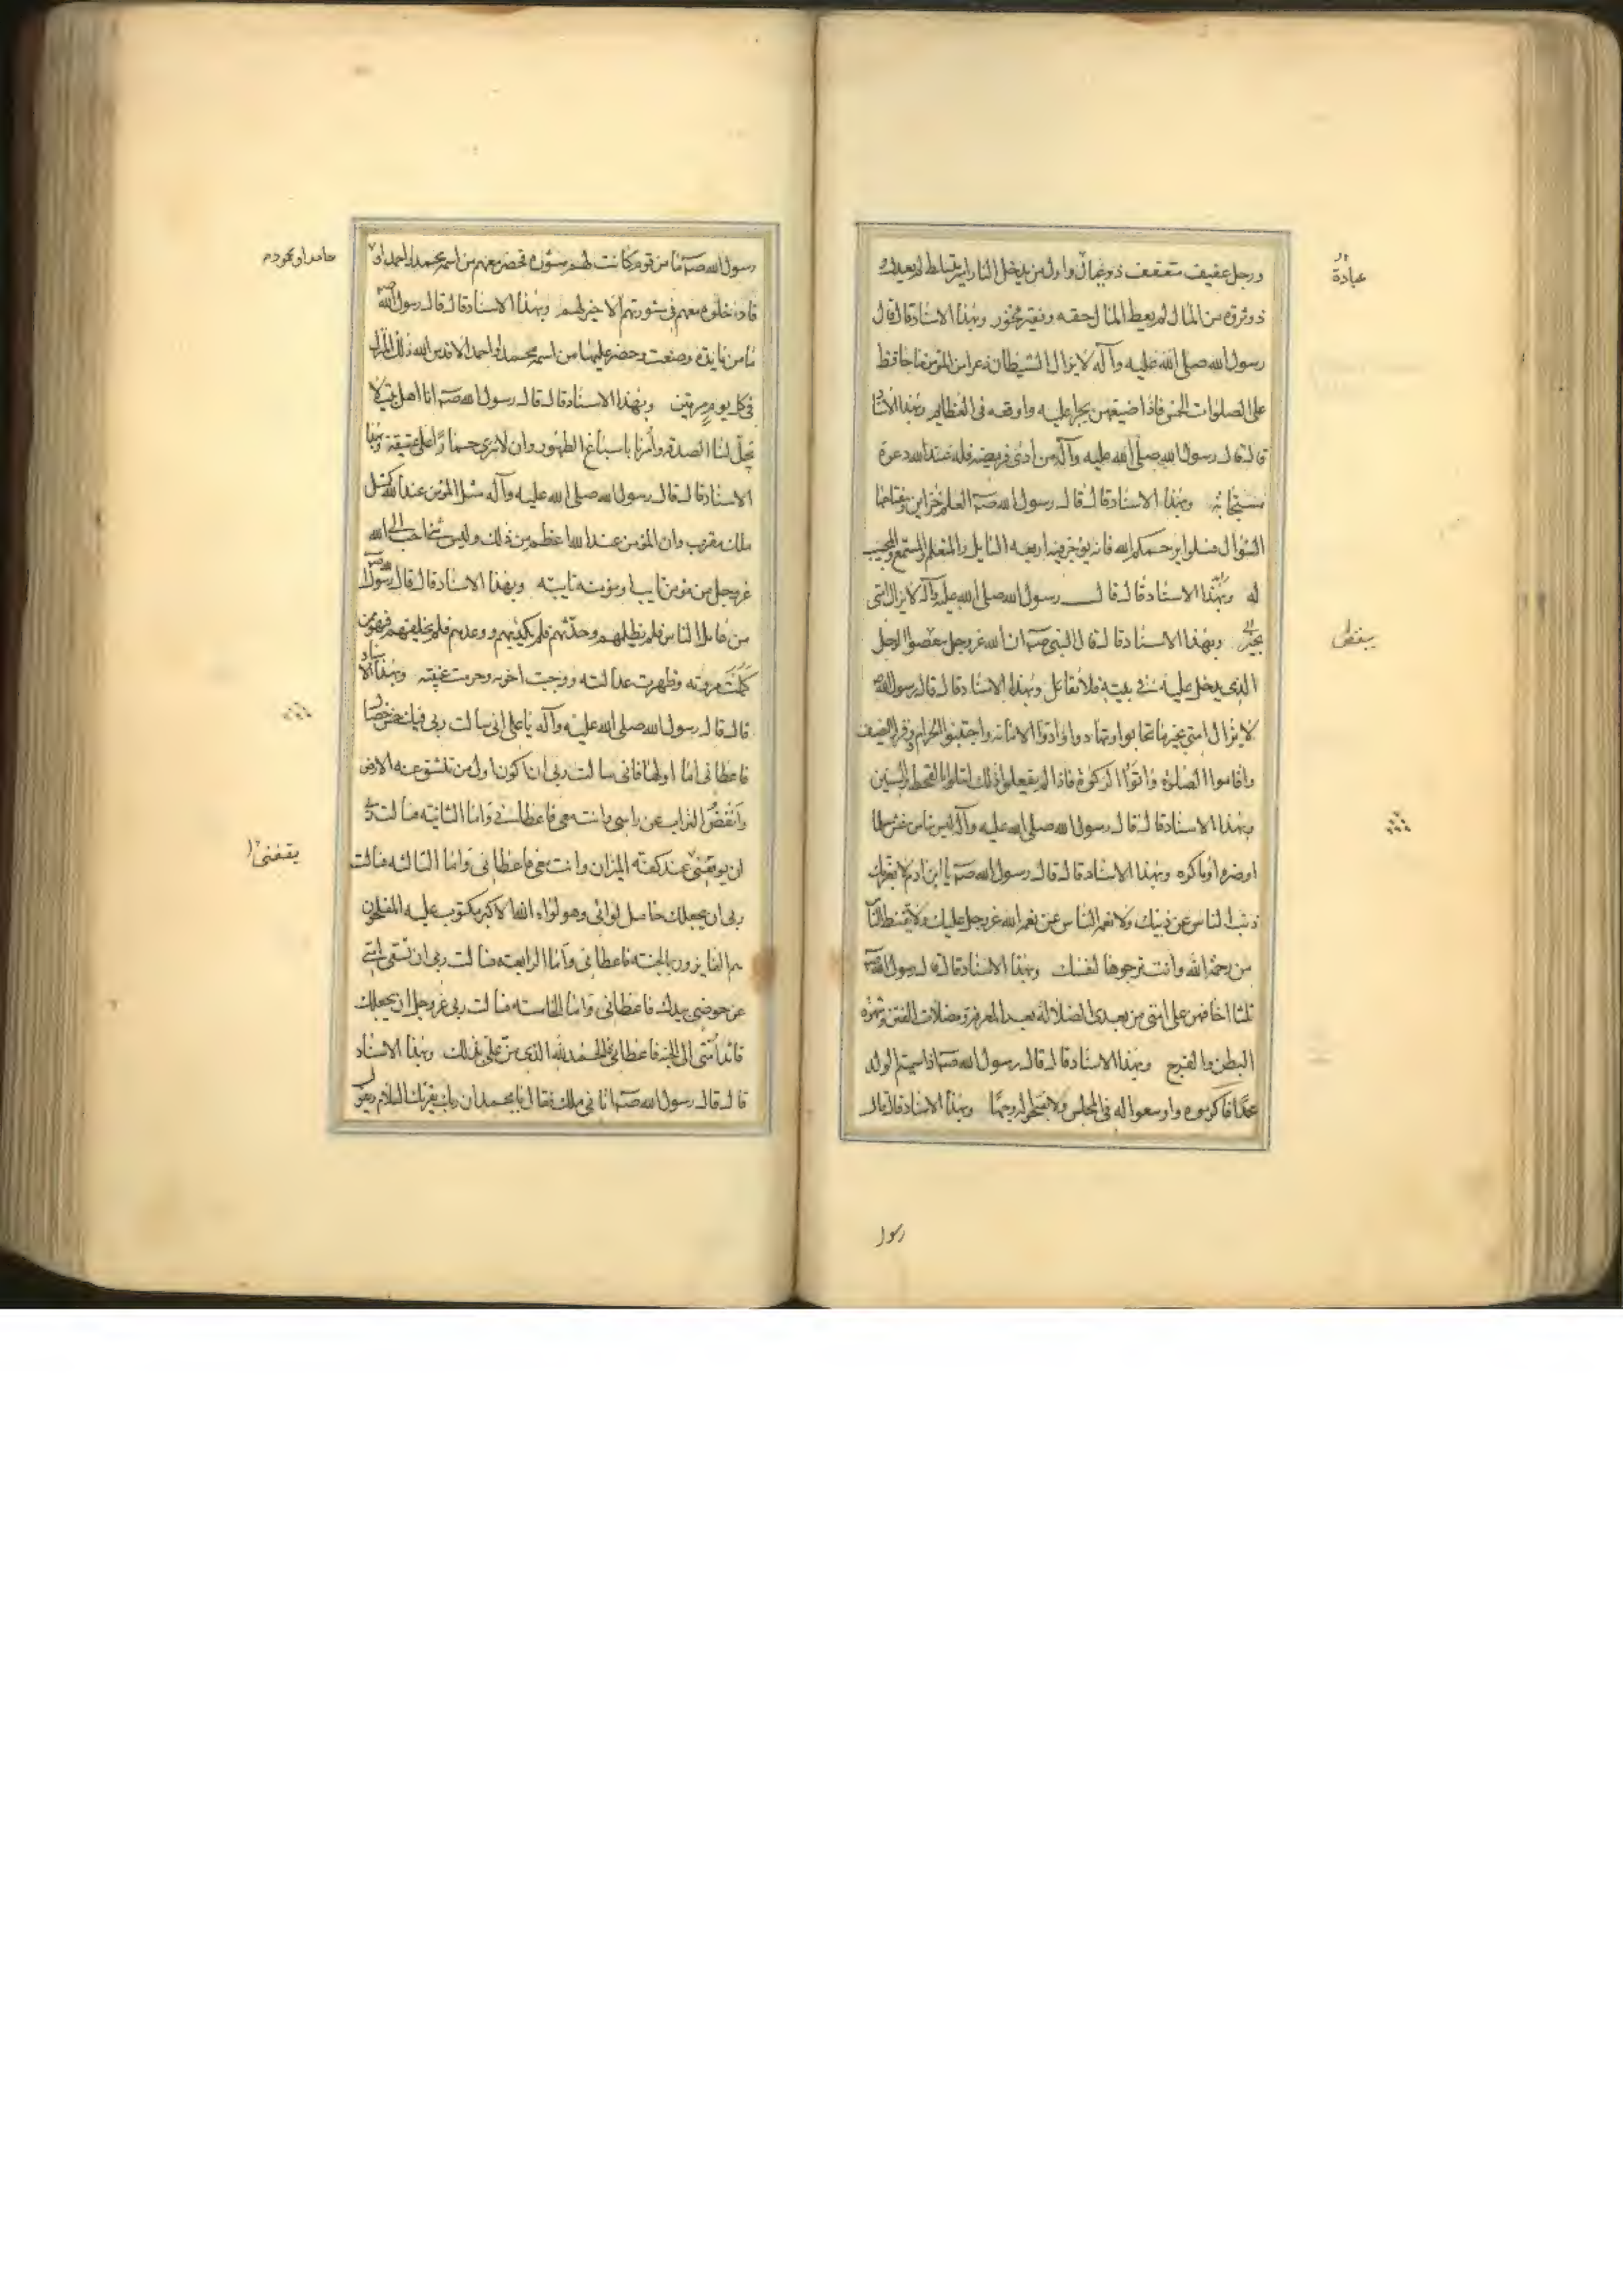 ورجل عفيف متعفف ذو عيال واول من يدخل النار امير متسلط لم يعدل و
ذو ثروة من المال لم يعط المال حقه وفقير فخور وبهذا الاسناد قال قال
رسول الله صلى الله عليه وآله لا يزال الشيطان ذعرا من المؤمن ما حافظ
على الصلوات الخمس فاذا ضيعهن تجرا عليه واوقعه في العظايم وبهذا الاسناد
قال قال رسول الله صلى الله عليه وآله من ادى فريضة فله عند الله دعوة
مستجابة وبهذا الاسناد قال قال رسول الله صـ العلم خزاين ومفتاحها
السؤال فسلوا يرحمكم الله فانه يوجر فيه اربعة السايل والمعلم والمستمع والمجيب
له وبهذا الاسناد قال قال رسول الله صلى الله عليه وآله لا يزال امتي
بخير وبهذا الاسناد قال قال النبي صـ ان الله عز وجل الرجل
الذي يدخل عليه في بيته فلا يقاتل وبهذا الاسناد قال قال رسول الله صـ
لا يزال امتي بخير ما تحابوا وتهادوا وادوا الامانة واجتنبوا الحرام وقروا الضيف
واقاموا الصلوة واتوا الزكوة فاذا لم يفعلوا ذلك ابتلوا بالقحط والسنين
وبهذا الاسناد قال قال رسول الله صلى الله عليه وآله ليس منا من غش مسلما
او ضره او ماكره وبهذا الاسناد قال قال رسول الله صـ يا ابن ادم لا يغرنك
ذنب الناس عن ذنبك ولا نعم الناس عن نعم الله عز وجل عليك ولا تقنط الناس
من رحمة الله وانت ترجوها لنفسك وبهذا الاسناد قال قال رسول الله صـ
ثلثة اخافهن على امتي من بعدي الضلالة بعد المعرفة ومضلات الفتن وشهوة
البطن والفرج وبهذا الاسناد قال قال رسول الله صـ اذا سميتم الولد
محمدا فاكرموه واوسعوا له في المجلس ولا تقبحوا له وجها وبهذا الاسناد قال قال
عبادة
رسول
رسول الله صـ ما من قوم كانت لهم مشورة فحضر معهم من اسمه محمد او احمد او
فادخلوه معهم في مشورتهم الا خير لهم وبهذا الاسناد قال قال رسول الله صـ
ما من مايدة وضعت وحضر عليها من اسمه محمد او احمد الا قدس الله ذلك المنزل
في كل يوم مرتين وبهذا الاسناد قال قال رسول الله صـ انا اهل بيت لا
تحل لنا الصدقة وأمرنا باسباغ الطهور وان لا ننزي حمارا على عتيقة وبهذا
الاسناد قال قال رسول الله صلى الله عليه وآله مثل المؤمن عند الله كمثل
ملك مقرب وان المؤمن عند الله اعظم من ذلك وليس شئ احب الى الله
عز وجل من مؤمن تايب او مؤمنة تايبة وبهذا الاسناد قال قال رسول الله صـ
من عامل الناس فلم يظلمهم وحدثهم فلم يكذبهم ووعدهم فلم يخلفهم فهو ممن
كملت مروته وظهرت عدالته ووجبت اخوته وحرمت غيبته وبهذا الاسناد
قال قال رسول الله صلى الله عليه وآله يا علي اني سالت ربي فيك خمس خصال
فاعطاني اما اولها فاني سالت ربي ان اكون اول من تنشق عنه الارض
وانفض التراب عن راسي وانت معي فاعطاني واما الثانية فسالت ربي
ان يوقفني عند كفة الميزان وانت معي فاعطاني واما الثالثة فسالت
ربي ان يجعلك حامل لوائي وهو لواء الله الاكبر مكتوب عليه المفلحون
هم الفايزون بالجنة فاعطاني واما الرابعة فسالت ربي ان تسقي امتي
من حوضي بيدك فاعطاني واما الخامسة فسالت ربي عز وجل ان يجعلك
قائد امتي الى الجنة فاعطاني فالحمد لله الذي من علي بذلك وبهذا الاسناد
قال قال رسول الله صـ اتاني ملك فقال يا محمد ان ربك يقرئك السلام ويقول
حامد او محمود
يقفني